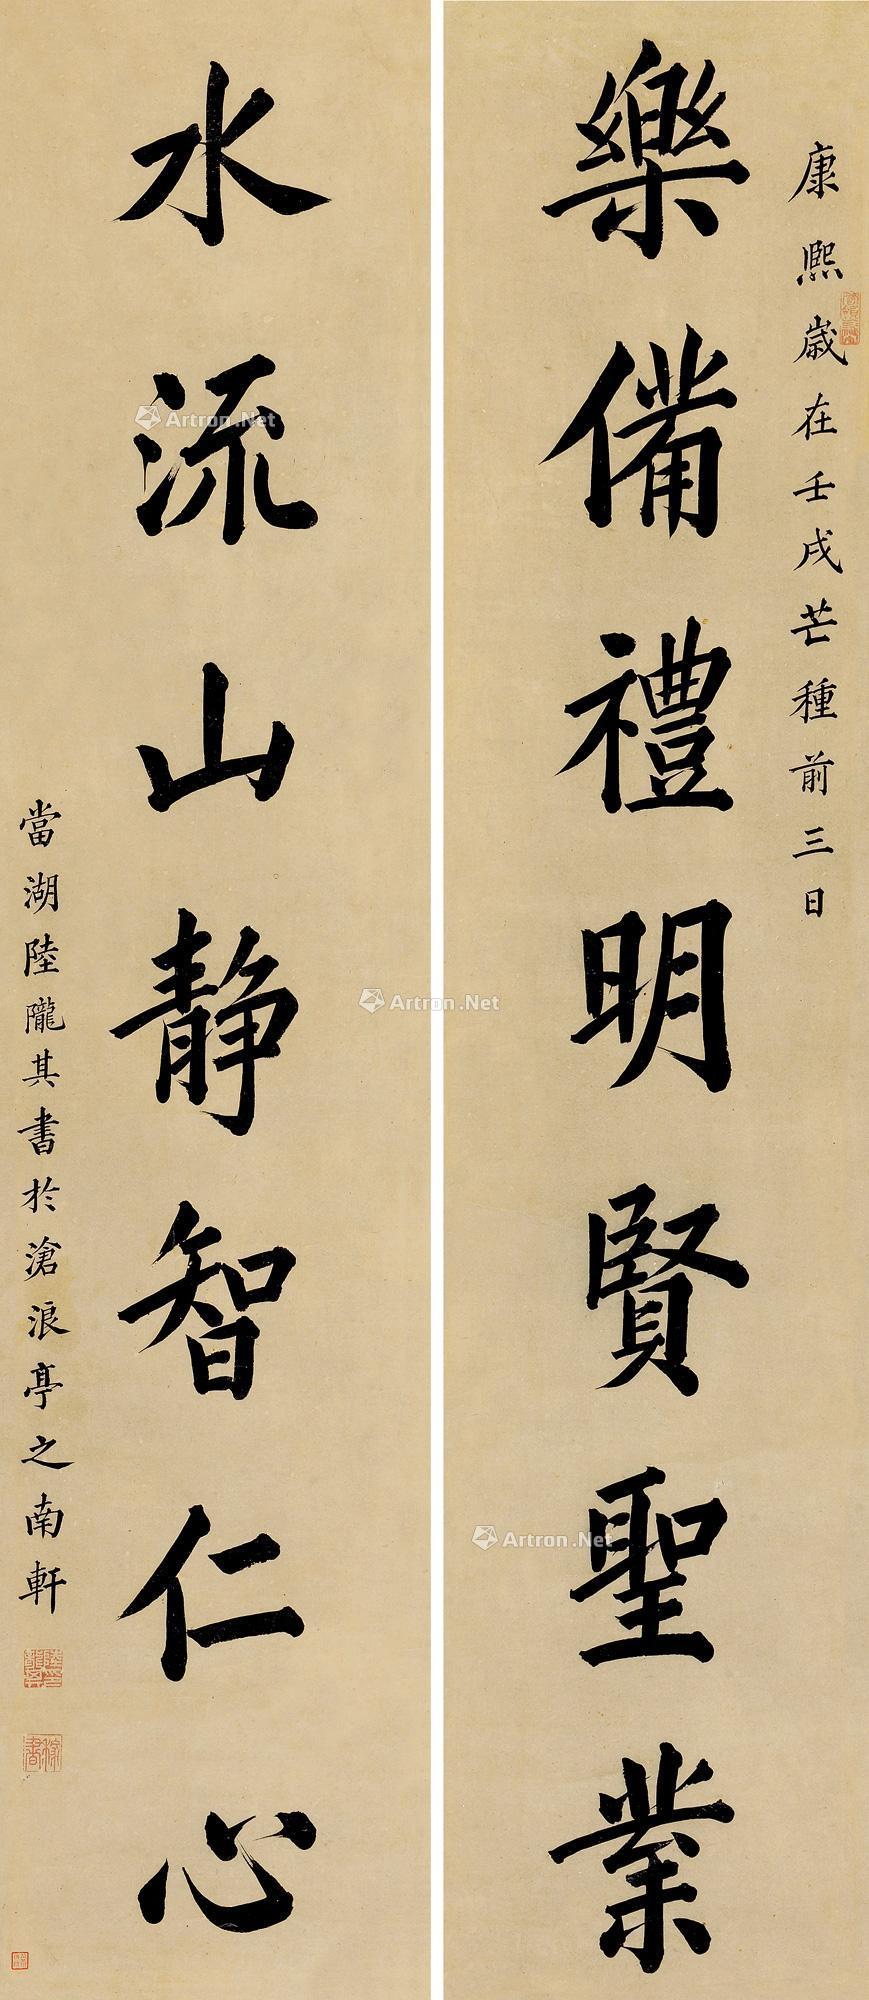 康熙歲在壬戌芒種前三日
樂備禮明賢聖業
水流山靜智仁心
當湖陸隴其書於滄浪亭之南軒
Artron.Net
Artron.Net
Artron.Net